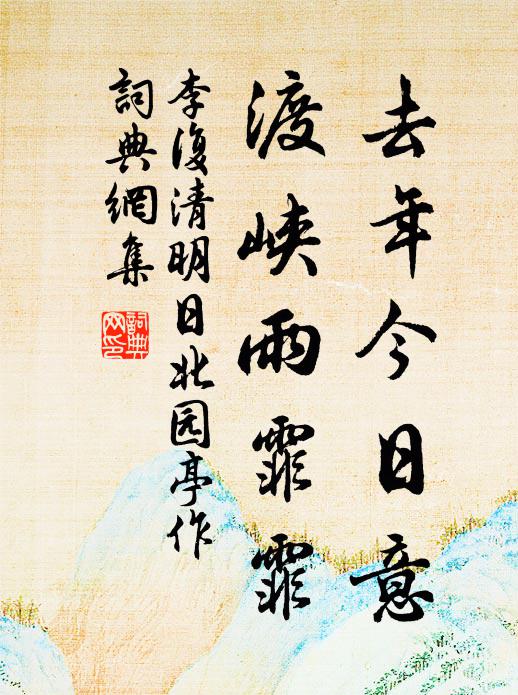 去年今日意
渡峡雨霏霏
李復清明日北园亭作
詞典網集
詞典網印